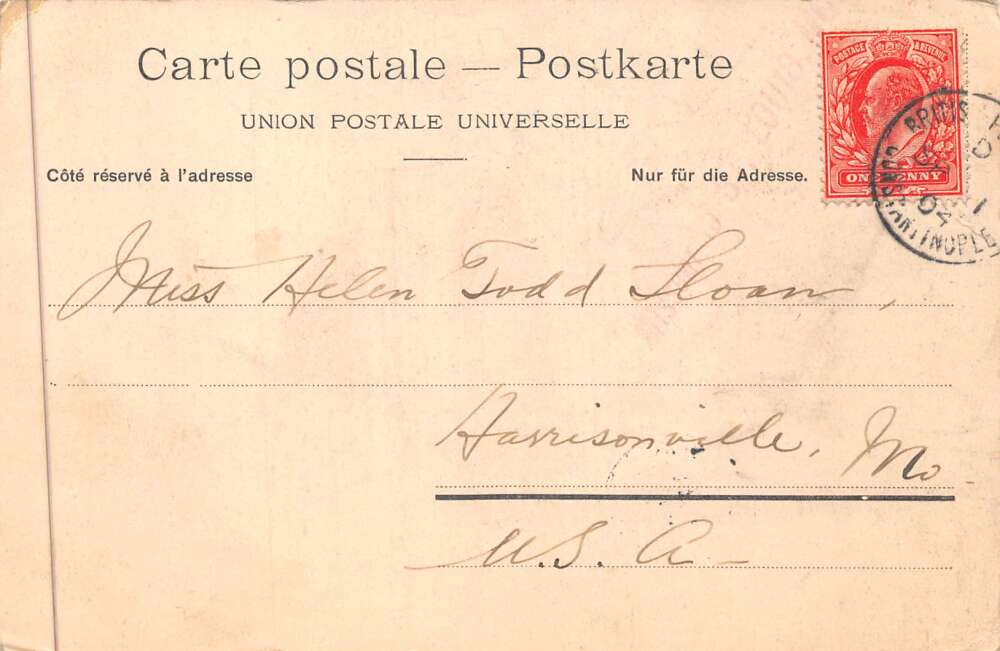 Carte postale — Postkarte
UNION POSTALE UNIVERSELLE
Côté réservé à l'adresse
Nur für die Adresse.
POSTAGE & REVENUE
ONE PENNY
BRITIS
CONSTANTINOPLE
04
Miss Helen Todd Sloan,
Harrisonville, Mo
U.S. A-